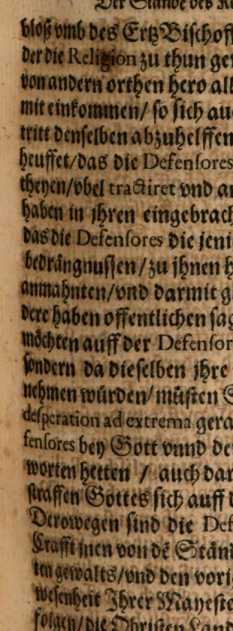 Der Stände des Kö
bloß vmb des Ertz Bischoff
der die Religion zu thun gew
von andern orthen hero all
mit einkommen / so sich auc
tritt denselben abzuhelffen
heuffet / das die Defensores
theyen / vbel tractiret vnd an
haben in jhren eingebrach
das die Defensores die jeni
bedrängnussen / zu jhnen h
anmahnten / vnd darmit g
dere haben offentlichen sag
möchten auff der Defensor
sondern da dieselben jhre
nehmen würden / müsten S
desperation ad extrema gera
fensores bey Gott vnnd de
worten hetten / auch dar
straffen Gottes sich auff l
Derowegen sind die Def
Krafft jnen von dē Ständ
ten gewalts / vnd den vori
wesenheit Jhrer Mayeste
folgen / die Christen Land